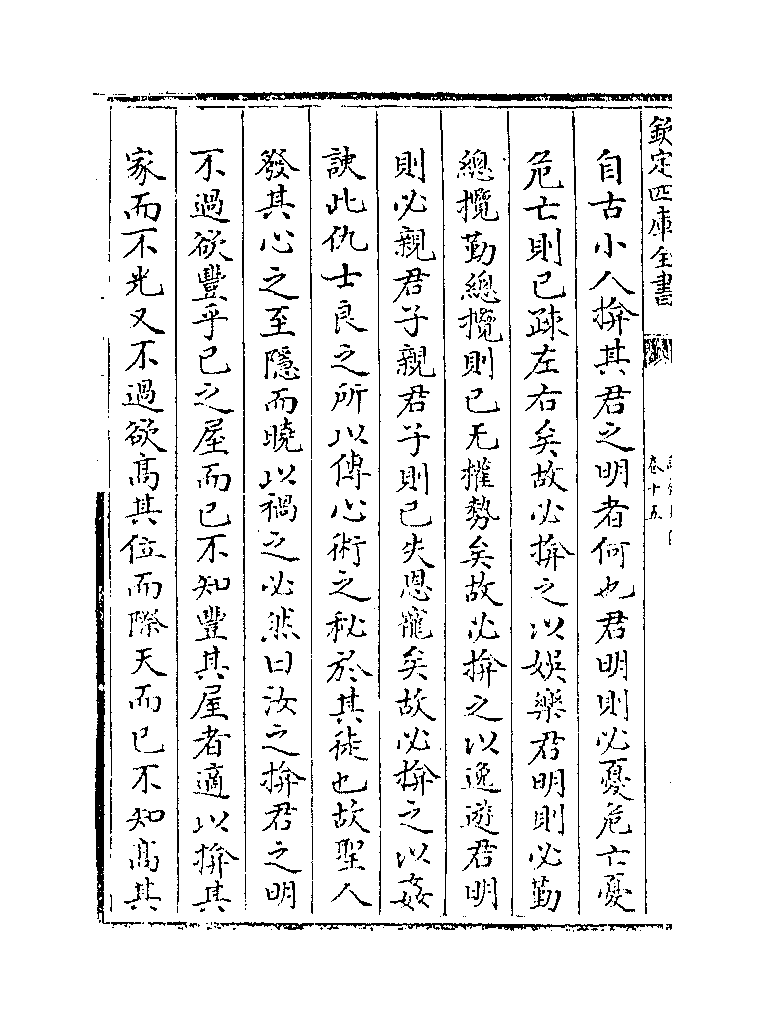 欽定四庫全書
卷十五
自古小人揜其君之明者何也君明則必憂危亡憂
危亡則已疎左右矣故必揜之以娯樂君明則必勤
總攬勤總攬則已无權勢矣故必揜之以逸遊君明
則必親君子親君子則已失恩寵矣故必揜之以姦
諛此仇士良之所以傳心術之秘於其徒也故聖人
發其心之至隱而曉以禍之必然曰汝之揜君之明
不過欲豐乎已之屋而已不知豐其屋者適以揜其
家而不光又不過欲髙其位而際天而已不知髙其